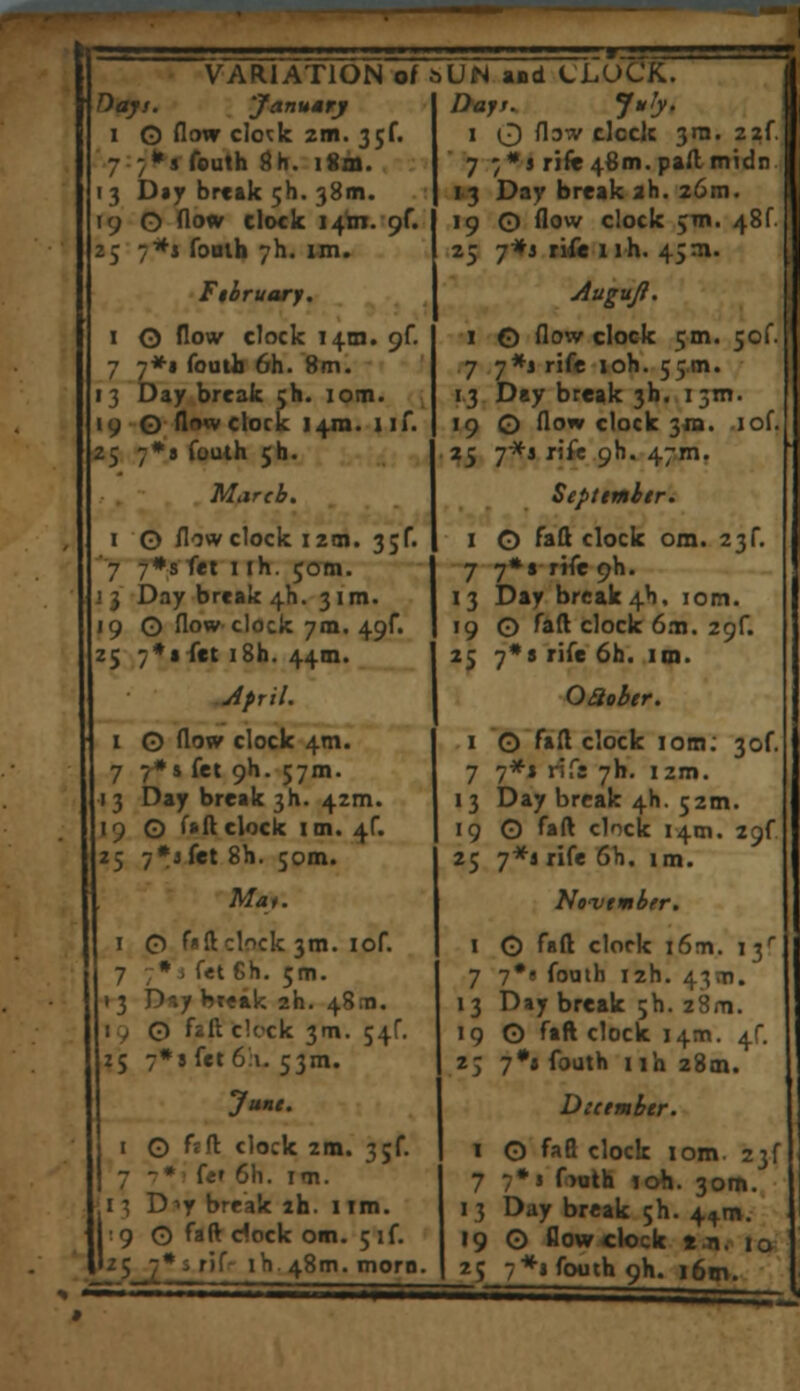 VARIATION of SUN and CLOCK.
Days. January
1 ☉ ſlow clock 2m. 35ſ.
7 7*s ſouth 8h. 18m.
13 Day break 5h. 38m.
19 ☉ ſlow clock 14m. 9ſ.
25 7*s ſouth 7h. 1m.
February.
1 ☉ ſlow clock 14m. 9ſ.
7 7*s ſouth 6h. 8m.
13 Day break 5h. 10m.
19 ☉ ſlow clock 14m. 11ſ.
25 7*s ſouth 5h.
March.
1 ☉ ſlow clock 12m. 35ſ.
7 7*s ſet 11h. 50m.
13 Day break 4h. 31m.
19 ☉ ſlow clock 7m. 49ſ.
25 7*s ſet 18h. 44m.
April.
1 ☉ ſlow clock 4m.
7 7*s ſet 9h. 57m.
13 Day break 3h. 42m.
19 ☉ ſaſt clock 1m. 4ſ.
25 7*s ſet 8h. 50m.
May.
1 ☉ faſt clock 3m. 10ſ.
7 7*s ſet 8h. 5m.
13 Day break 2h. 48m.
19 ☉ faſt clock 3m. 54ſ.
25 7*s ſet 6h. 53m.
June.
1 ☉ faſt clock 2m. 35ſ.
7 7*s ſet 6h. 1m.
13 Day break 2h. 11m.
19 ☉ faſt clock 0m. 51ſ.
25 7*s riſe 1h. 48m. morn.
Days. July.
1 ☉ ſlow clock 3m. 22ſ.
7 7*s riſe 48m. paſt midn
13 Day break 2h. 26m.
19 ☉ ſlow clock 5m. 48ſ.
25 7*s riſe 11h. 45m.
Auguſt.
1 ☉ ſlow clock 5m. 50ſ.
7 7*s riſe 10h. 55m.
13 Day break 3h. 13m.
19 ☉ ſlow clock 3m. 10ſ.
25 7*s riſe 9h. 47m.
September.
1 ☉ faſt clock 0m. 23ſ.
7 7*s riſe 9h.
13 Day break 4h. 10m.
19 ☉ faſt clock 6m. 29ſ.
25 7*s riſe 6h. 1m.
October.
1 ☉ faſt clock 10m: 30ſ.
7 7*s riſe 7h. 12m.
13 Day break 4h. 52m.
19 ☉ faſt clock 14m. 29ſ
25 7*s riſe 6h. 1m.
November.
1 ☉ faſt clock 16m. 13ſ
7 7*s ſouth 12h. 43m.
13 Day break 5h. 28m.
19 ☉ faſt clock 14m. 4ſ.
25 7*s ſouth 11h 28m.
December.
1 ☉ faſt clock 10m. 23ſ
7 7*s ſouth 10h. 30m.
13 Day break 5h. 44m.
19 ☉ ſlow clock 10
25 7*s ſouth 9h. 16m.